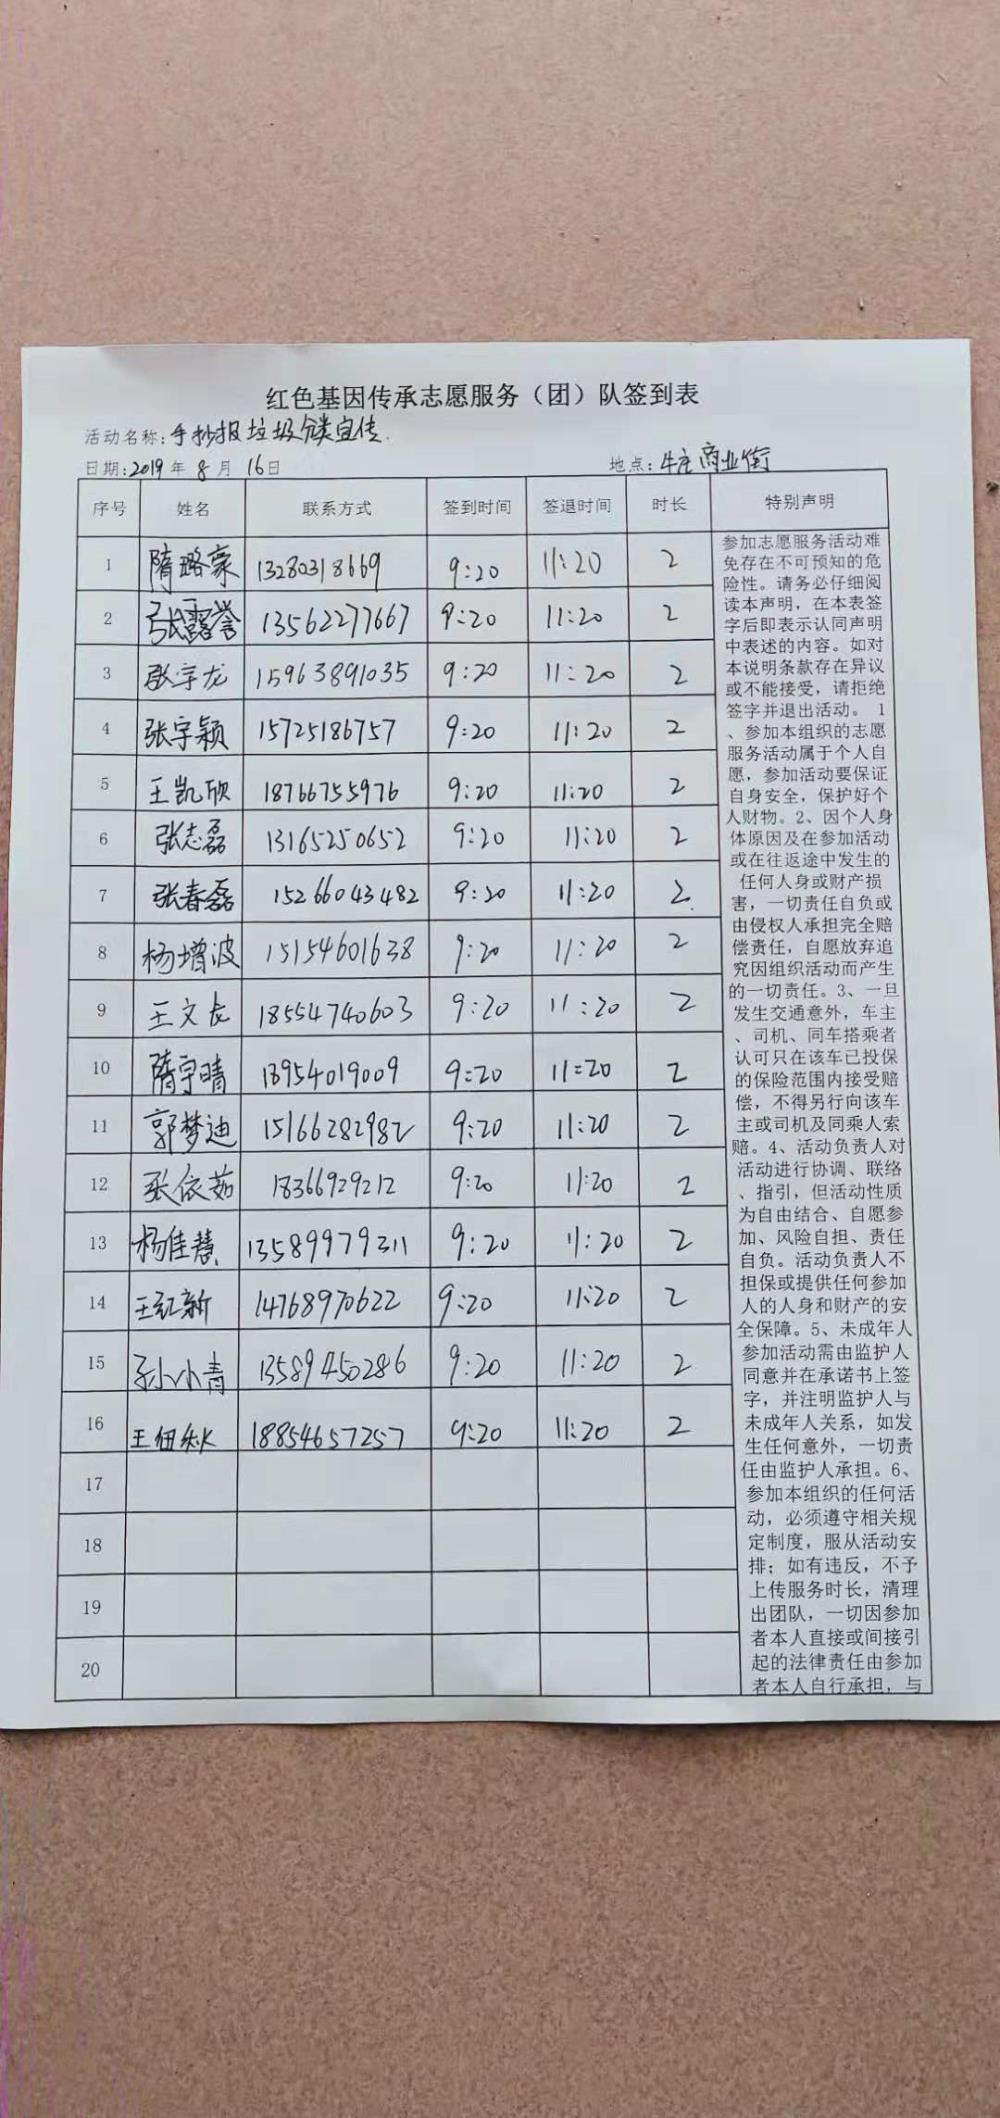 红色基因传承志愿服务（团）队签到表
活动名称：手抄报垃圾分类宣传.
日期：2019年8月16日 地点：牛庄商业街
序号 姓名 联系方式 签到时间 签退时间 时长 特别声明
1 隋璐豪 13280318669 9:20 11:20 2
2 张露誉 13562277667 9:20 11:20 2
3 张宇龙 15963891035 9:20 11:20 2
4 张宇颖 15725186757 9:20 11:20 2
5 王凯欣 18766755976 9:20 11:20 2
6 张志磊 13165250652 9:20 11:20 2
7 张春磊 15266043482 9:20 11:20 2
8 杨增波 15154601638 9:20 11:20 2
9 王文龙 18554740603 9:20 11:20 2
10 隋宇晴 13954019009 9:20 11:20 2
11 郭梦迪 15166282982 9:20 11:20 2
12 张依茹 18366929212 9:20 11:20 2
13 杨佳慧 13589979311 9:20 11:20 2
14 王红新 14768970622 9:20 11:20 2
15 孙小青 13589450286 9:20 11:20 2
16 王 秋 18854657257 9:20 11:20 2
17
18
19
20
参加志愿服务活动难
免存在不可预知的危
险性。请务必仔细阅
读本声明，在本表签
字后即表示认同声明
中表述的内容。如对
本说明条款存在异议
或不能接受，请拒绝
签字并退出活动。 1
、参加本组织的志愿
服务活动属于个人自
愿，参加活动要保证
自身安全，保护好个
人财物。2、因个人身
体原因及在参加活动
或在往返途中发生的
任何人身或财产损
害，一切责任自负或
由侵权人承担完全赔
偿责任，自愿放弃追
究因组织活动而产生
的一切责任。3、一旦
发生交通意外，车主
、司机、同车搭乘者
认可只在该车已投保
的保险范围内接受赔
偿，不得另行向该车
主或司机及同乘人索
赔。4、活动负责人对
活动进行协调、联络
、指引，但活动性质
为自由结合、自愿参
加、风险自担、责任
自负。活动负责人不
担保或提供任何参加
人的人身和财产的安
全保障。5、未成年人
参加活动需由监护人
同意并在承诺书上签
字，并注明监护人与
未成年人关系，如发
生任何意外，一切责
任由监护人承担。6、
参加本组织的任何活
动，必须遵守相关规
定制度，服从活动安
排；如有违反，不予
上传服务时长，清理
出团队，一切因参加
者本人直接或间接引
起的法律责任由参加
者本人自行承担，与